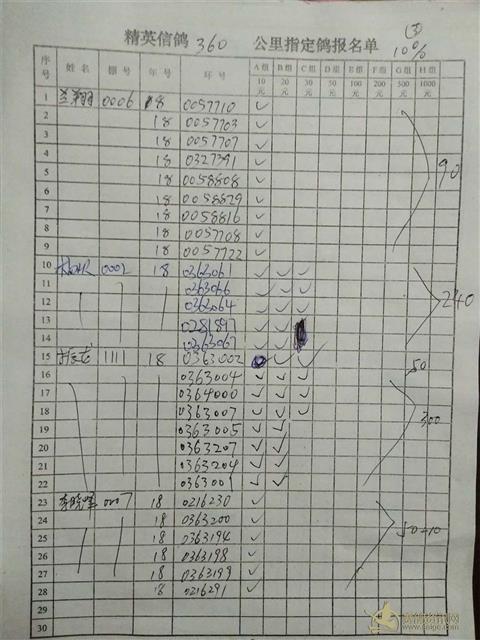 精英信鸽 360 公里指定鸽报名单 (3) 10%
序号 姓名 棚号 年号 环号 A组 B组 C组 D组 E组 F组 G组 H组
10元 20元 30元 50元 100元 200元 500元 1000元
1 0006 18 0057710 ✓
2 18 0057703 ✓
3 18 0057707 ✓
4 18 0327391 ✓
5 18 0058808 ✓ 90
6 18 0058829 ✓
7 18 0058816 ✓
8 18 0057708 ✓
9 18 0057722 ✓
10 0002 18 0363061 ✓ ✓ ✓
11 0363066 ✓ ✓ ✓
12 0363064 ✓ ✓ ✓ 240
13 0281897 ✓ ✓
14 0363067 ✓ ✓
15 1111 18 0363002 ✓ ✓
16 0363004 ✓ ✓ ✓ 50
17 0364000 ✓ ✓ ✓
18 0363007 ✓ ✓ ✓ 300
19 0363005 ✓ ✓
20 0363207 ✓ ✓
21 0363204 ✓ ✓
22 036300 ✓ ✓
23 李晓峰 0007 18 0216230 ✓
24 18 0363200 ✓
25 18 0363194 ✓ 50+10
26 18 0363198 ✓
27 18 0363199 ✓
28 18 0216291 ✓
29
30